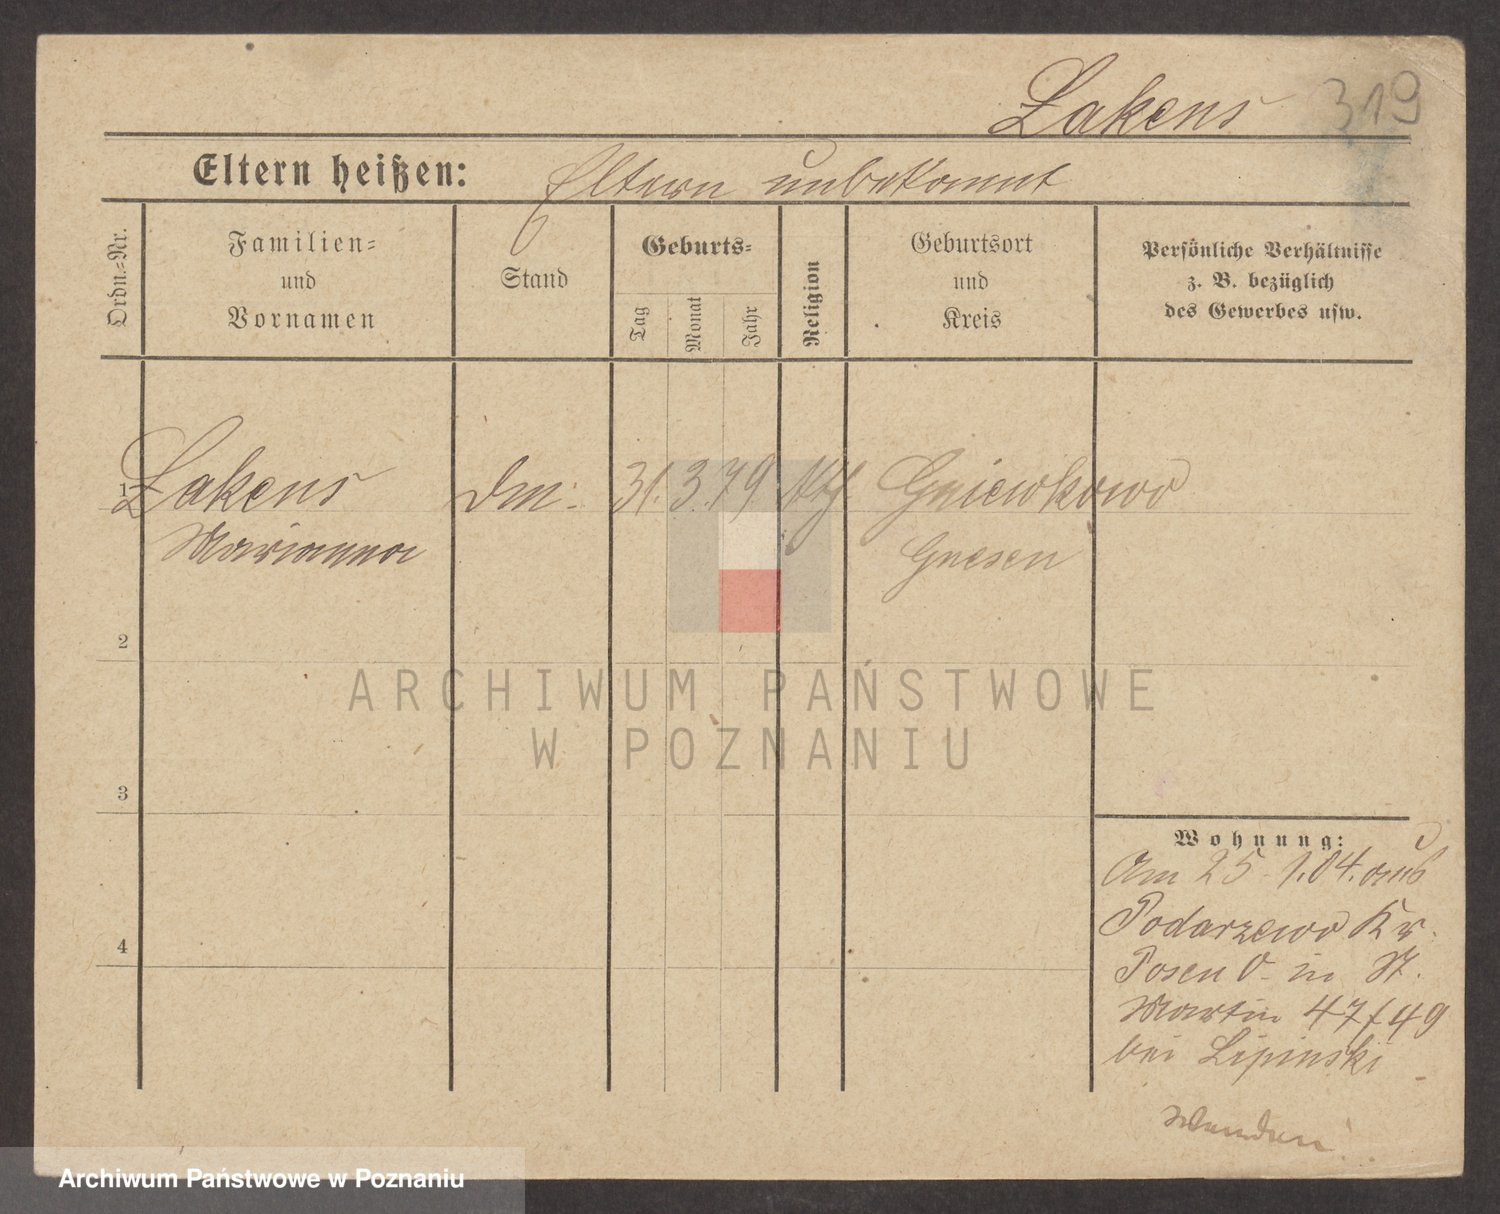 Lakens 319
Eltern heißen: Eltern unbekannt
Ordn.-Nr.
Familien-
und
Vornamen
Stand
Geburts-
Tag
Monat
Jahr
Religion
Geburtsort
und
Kreis
Persönliche Verhältnisse
z. B. bezüglich
des Gewerbes usw.
1 Lakens Dm. 31. 3. 79 Kth. Gniewkowo
Marianna Gnesen
2
ARCHIWUM PAŃSTWOWE
W POZNANIU
3
Wohnung:
Am 25. 1. 04. aus
Podarzewo Kr.
Posen O. in St.
Martin 47/49
bei Lipinski
4
Wenden!
Archiwum Państwowe w Poznaniu